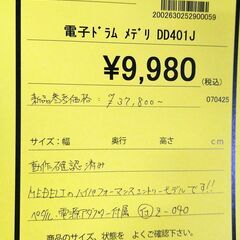 2002630252900059
電子ﾄﾞﾗﾑ ﾒﾃﾞﾘ DD401J
¥9,980(税込)
新品参考価格：¥37,800~
070425
サイズ：幅 奥行 高さ cm
動作確認済み
MEDELIのハイパフォーマンスエントリーモデルです!!
ペダル、電源アダプター付属
2-040
商品のサイズ、状態を よくご確認下さい